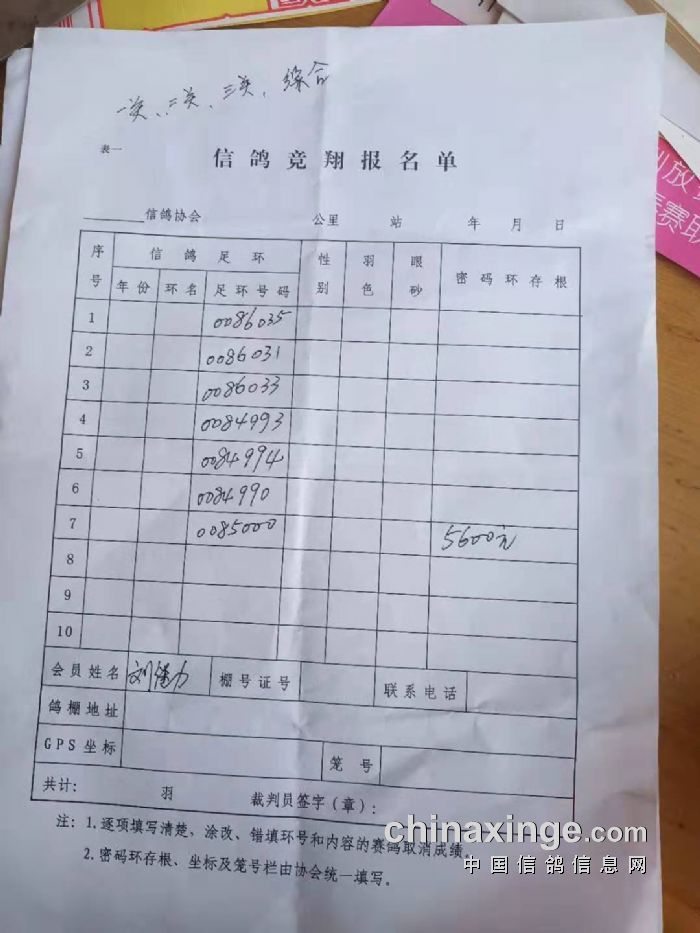 一关、二关、三关、综合
表一
信鸽竞翔报名单
信鸽协会 公里 站 年 月 日
序号 信鸽足环 性别 羽色 眼砂 密码环存根
年份 环名 足环号码
1 0086035
2 0086031
3 0086033
4 0084993
5 0084994
6 0084990
7 0085000 5600元
8
9
10
会员姓名 刘健力 棚号证号 联系电话
鸽棚地址
GPS坐标 笼号
共计: 羽 裁判员签字(章):
注: 1.逐项填写清楚,涂改、错填环号和内容的赛鸽取消成绩
2.密码环存根、坐标及笼号栏由协会统一填写。
chinaxinge.com
中国信鸽信息网